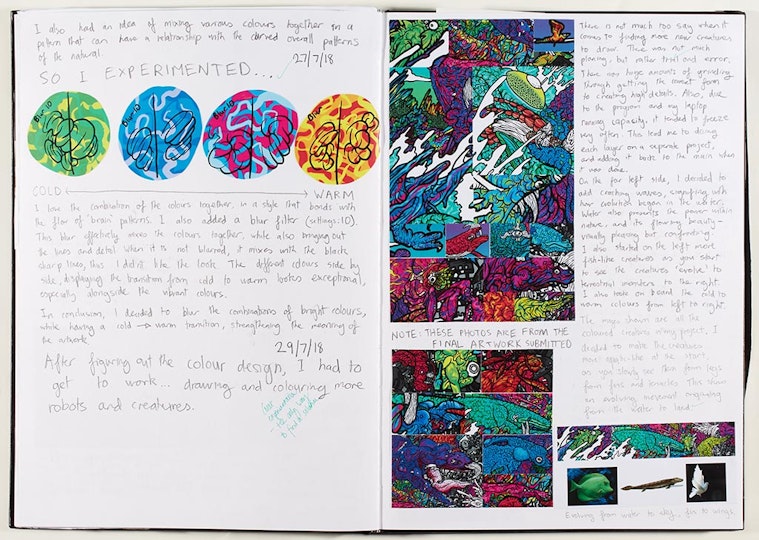 I also had an idea of mixing various colours together in a
pattern that can have a relationship with the curved overall patterns
of the natural.
27/7/18
SO I EXPERIMENTED....
Blur:10
Blur:10
Blur:10
Blur:10
COLD WARM
I love the combination of the colours together, in a style that bonds with
the flow of 'brain' patterns. I also added a blur filter (settings:10).
This blur effectively mixes the colours together, while also bringing out
the lines and detail. When it is not blurred, it mixes with the black
sharp lines, thus I didn't like the look. The different colours side by
side, displaying the transition from cold to warm looks exceptional,
especially alongside the vibrant colours.
In conclusion, I decided to blur the combinations of bright colours,
while having a cold → warm transition, strengthening the meaning of
the artwork.
29/7/18
After figuring out the colour design, I had to
get to work... drawing and colouring more
robots and creatures.
There is not much too say when it
comes to finding more new creatures
to draw. There was not much
planning, but rather trial and error.
There was large amounts of grinding
through getting the correct form
and creating high details. Also, due
to the program and my laptop
running capacity, it tended to freeze
very often. This lead me to doing
each layer on a separate project,
and adding it back to the main when
it was done.
On the far left side, I decided to
add crashing waves, signifying with
how evolution began in the water.
Water also presents the power within
nature, and its flowing beauty-
visually pleasing but conquering.
I also started on the left more
fish-like creatures as you start
to see the creatures 'evolve' to
terrestrial monsters to the right.
I also took on board the cold to
warm colours from left to right.
NOTE: THESE PHOTOS ARE FROM THE
FINAL ARTWORK SUBMITTED
The major shown are all the
coloured creatures in my project, I
decided to make the creatures
more aquatic-like at the start,
as you slowly see them form legs
from fins and tentacles. This shows
an evolving movement migrating
from the water to land.
Evolving from water to sky.. fin to wings